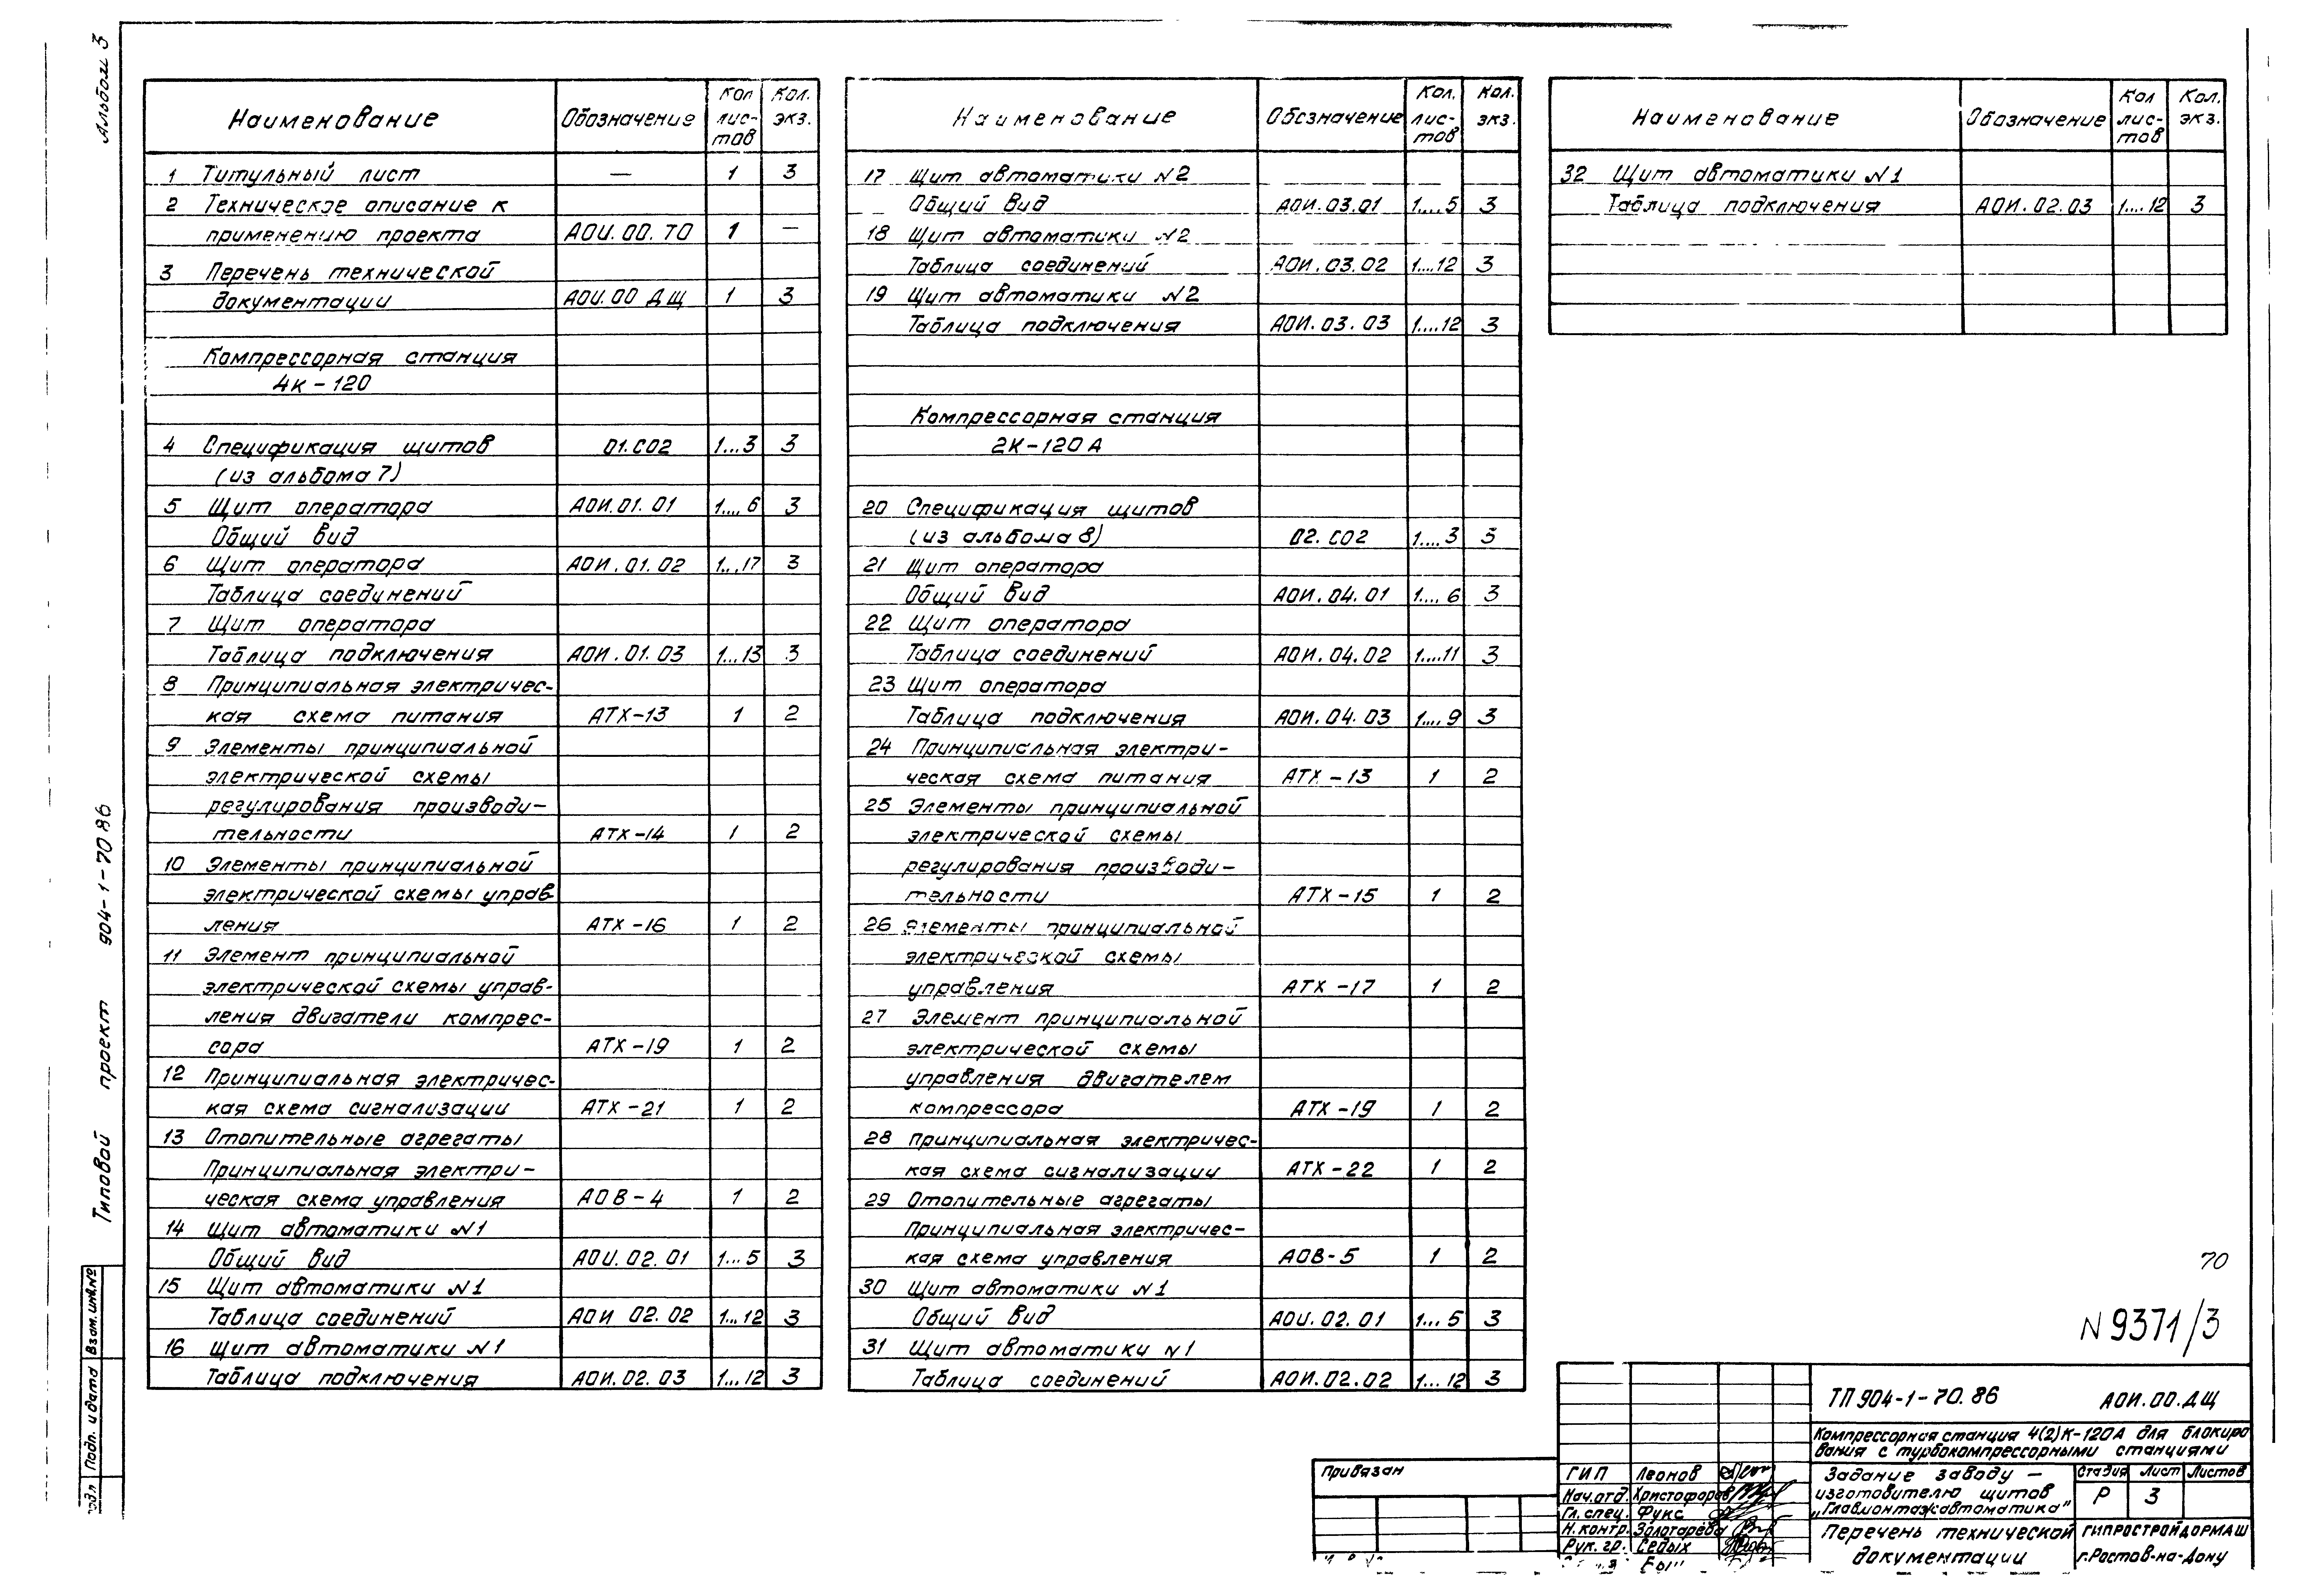 Альбом 3
Типовой проект 904-1-70 86
Взам. инв.№
Подп. и дата
Наименование Обозначение Кол лис-тов Кол. экз.
1 Титульный лист — 1 3
2 Техническое описание к
применению проекта АОИ.00.ТО 1 —
3 Перечень технической
документации АОИ.00 ДЩ 1 3
Компрессорная станция
4К-120
4 Спецификация щитов 01.СО2 1...3 3
(из альбома 7)
5 Щит оператора АОИ.01.01 1....6 3
Общий вид
6 Щит оператора АОИ.01.02 1...17 3
Таблица соединений
7 Щит оператора
Таблица подключения АОИ.01.03 1...13 3
8 Принципиальная электричес-
кая схема питания АТХ-13 1 2
9 Элементы принципиальной
электрической схемы
регулирования производи-
тельности АТХ-14 1 2
10 Элементы принципиальной
электрической схемы управ-
ления АТХ-16 1 2
11 Элемент принципиальной
электрической схемы управ-
ления двигатели компрес-
сора АТХ-19 1 2
12 Принципиальная электричес-
кая схема сигнализации АТХ-21 1 2
13 Отопительные агрегаты
Принципиальная электри-
ческая схема управления АОВ-4 1 2
14 Щит автоматики N1
Общий вид АОИ.02.01 1...5 3
15 Щит автоматики N1
Таблица соединений АОИ 02.02 1...12 3
16 Щит автоматики N1
Таблица подключения АОИ.02.03 1...12 3
Наименование Обозначение Кол. лис-тов Кол. экз.
17 Щит автоматики N2
Общий вид АОИ.03.01 1....5 3
18 Щит автоматики N2
Таблица соединений АОИ.03.02 1....12 3
19 Щит автоматики N2
Таблица подключения АОИ.03.03 1....12 3
Компрессорная станция
2К-120А
20 Спецификация щитов
(из альбома 8) 02.СО2 1....3 3
21 Щит оператора
Общий вид АОИ.04.01 1....6 3
22 Щит оператора
Таблица соединений АОИ.04.02 1....11 3
23 Щит оператора
Таблица подключения АОИ.04.03 1....9 3
24 Принципиальная электри-
ческая схема питания АТХ-13 1 2
25 Элементы принципиальной
электрической схемы
регулирования производи-
тельности АТХ-15 1 2
26 Элементы принципиальной
электрической схемы
управления АТХ-17 1 2
27 Элемент принципиальной
электрической схемы
управления двигателем
компрессора АТХ-19 1 2
28 Принципиальная электричес-
кая схема сигнализации АТХ-22 1 2
29 Отопительные агрегаты
Принципиальная электричес-
кая схема управления АОВ-5 1 2
30 Щит автоматики N1
Общий вид АОИ.02.01 1...5 3
31 Щит автоматики N1
Таблица соединений АОИ.02.02 1...12 3
Наименование Обозначение Кол лис-тов Кол. экз.
32 Щит автоматики N1
Таблица подключения АОИ.02.03 1....12 3
70
N9371/3
Привязан
ТП 904-1-70.86 АОИ.00.ДЩ
Компрессорная станция 4(2)К-120А для блокиро
вания с турбокомпрессорными станциями
ГИП Леонов
Нач.отд. Христофоров
Гл.спец. Фукс
Н.контр. Золотарёва
Рук.гр. Седых
Задание заводу-
изготовителю щитов
„Главмонтажавтоматика"
Стадия Лист Листов
Р 3
Перечень технической
документации
ГИПРОСТРОЙДОРМАШ
г.Ростов-на-Дону